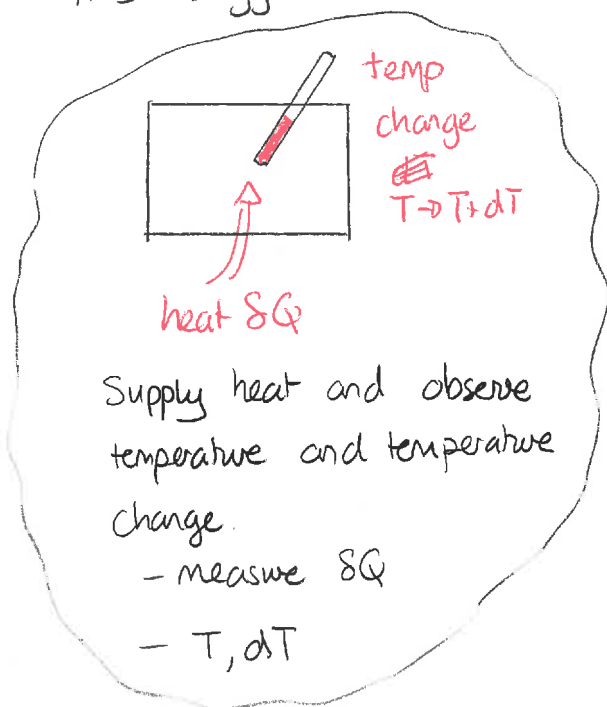 temp
change
T→T+dT
heat δQ
Supply heat and observe
temperature and temperature
change.
- measure δQ
- T, dT